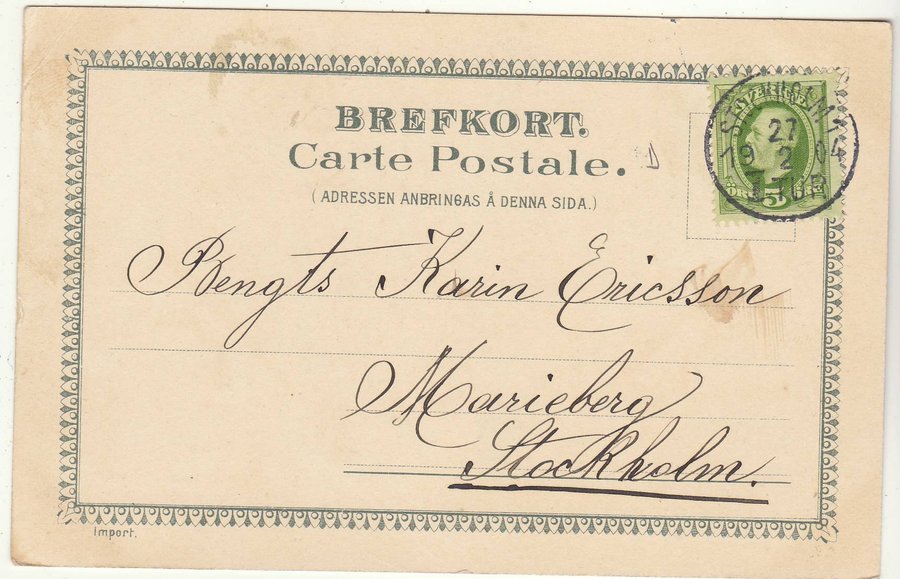 BREFKORT.
Carte Postale.
(ADRESSEN ANBRINGAS Å DENNA SIDA.)
STOCKHOLM 1
27
19 2 04
5
Bengts Karin Ericsson
Marieberg
Stockholm.
Import.